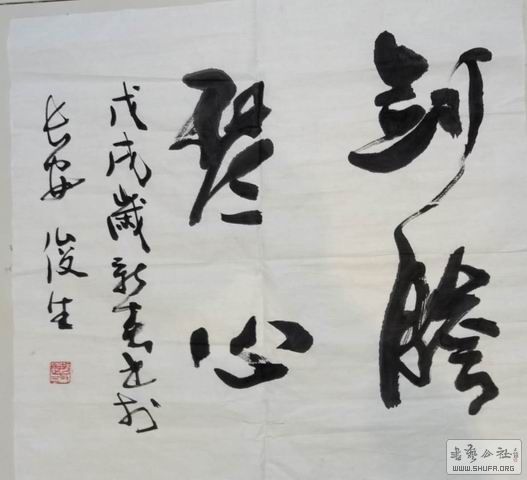 劍膽
琴心
戊戌歲新春书於
长安 俊生
书艺公社
WWW.SHUFA.ORG